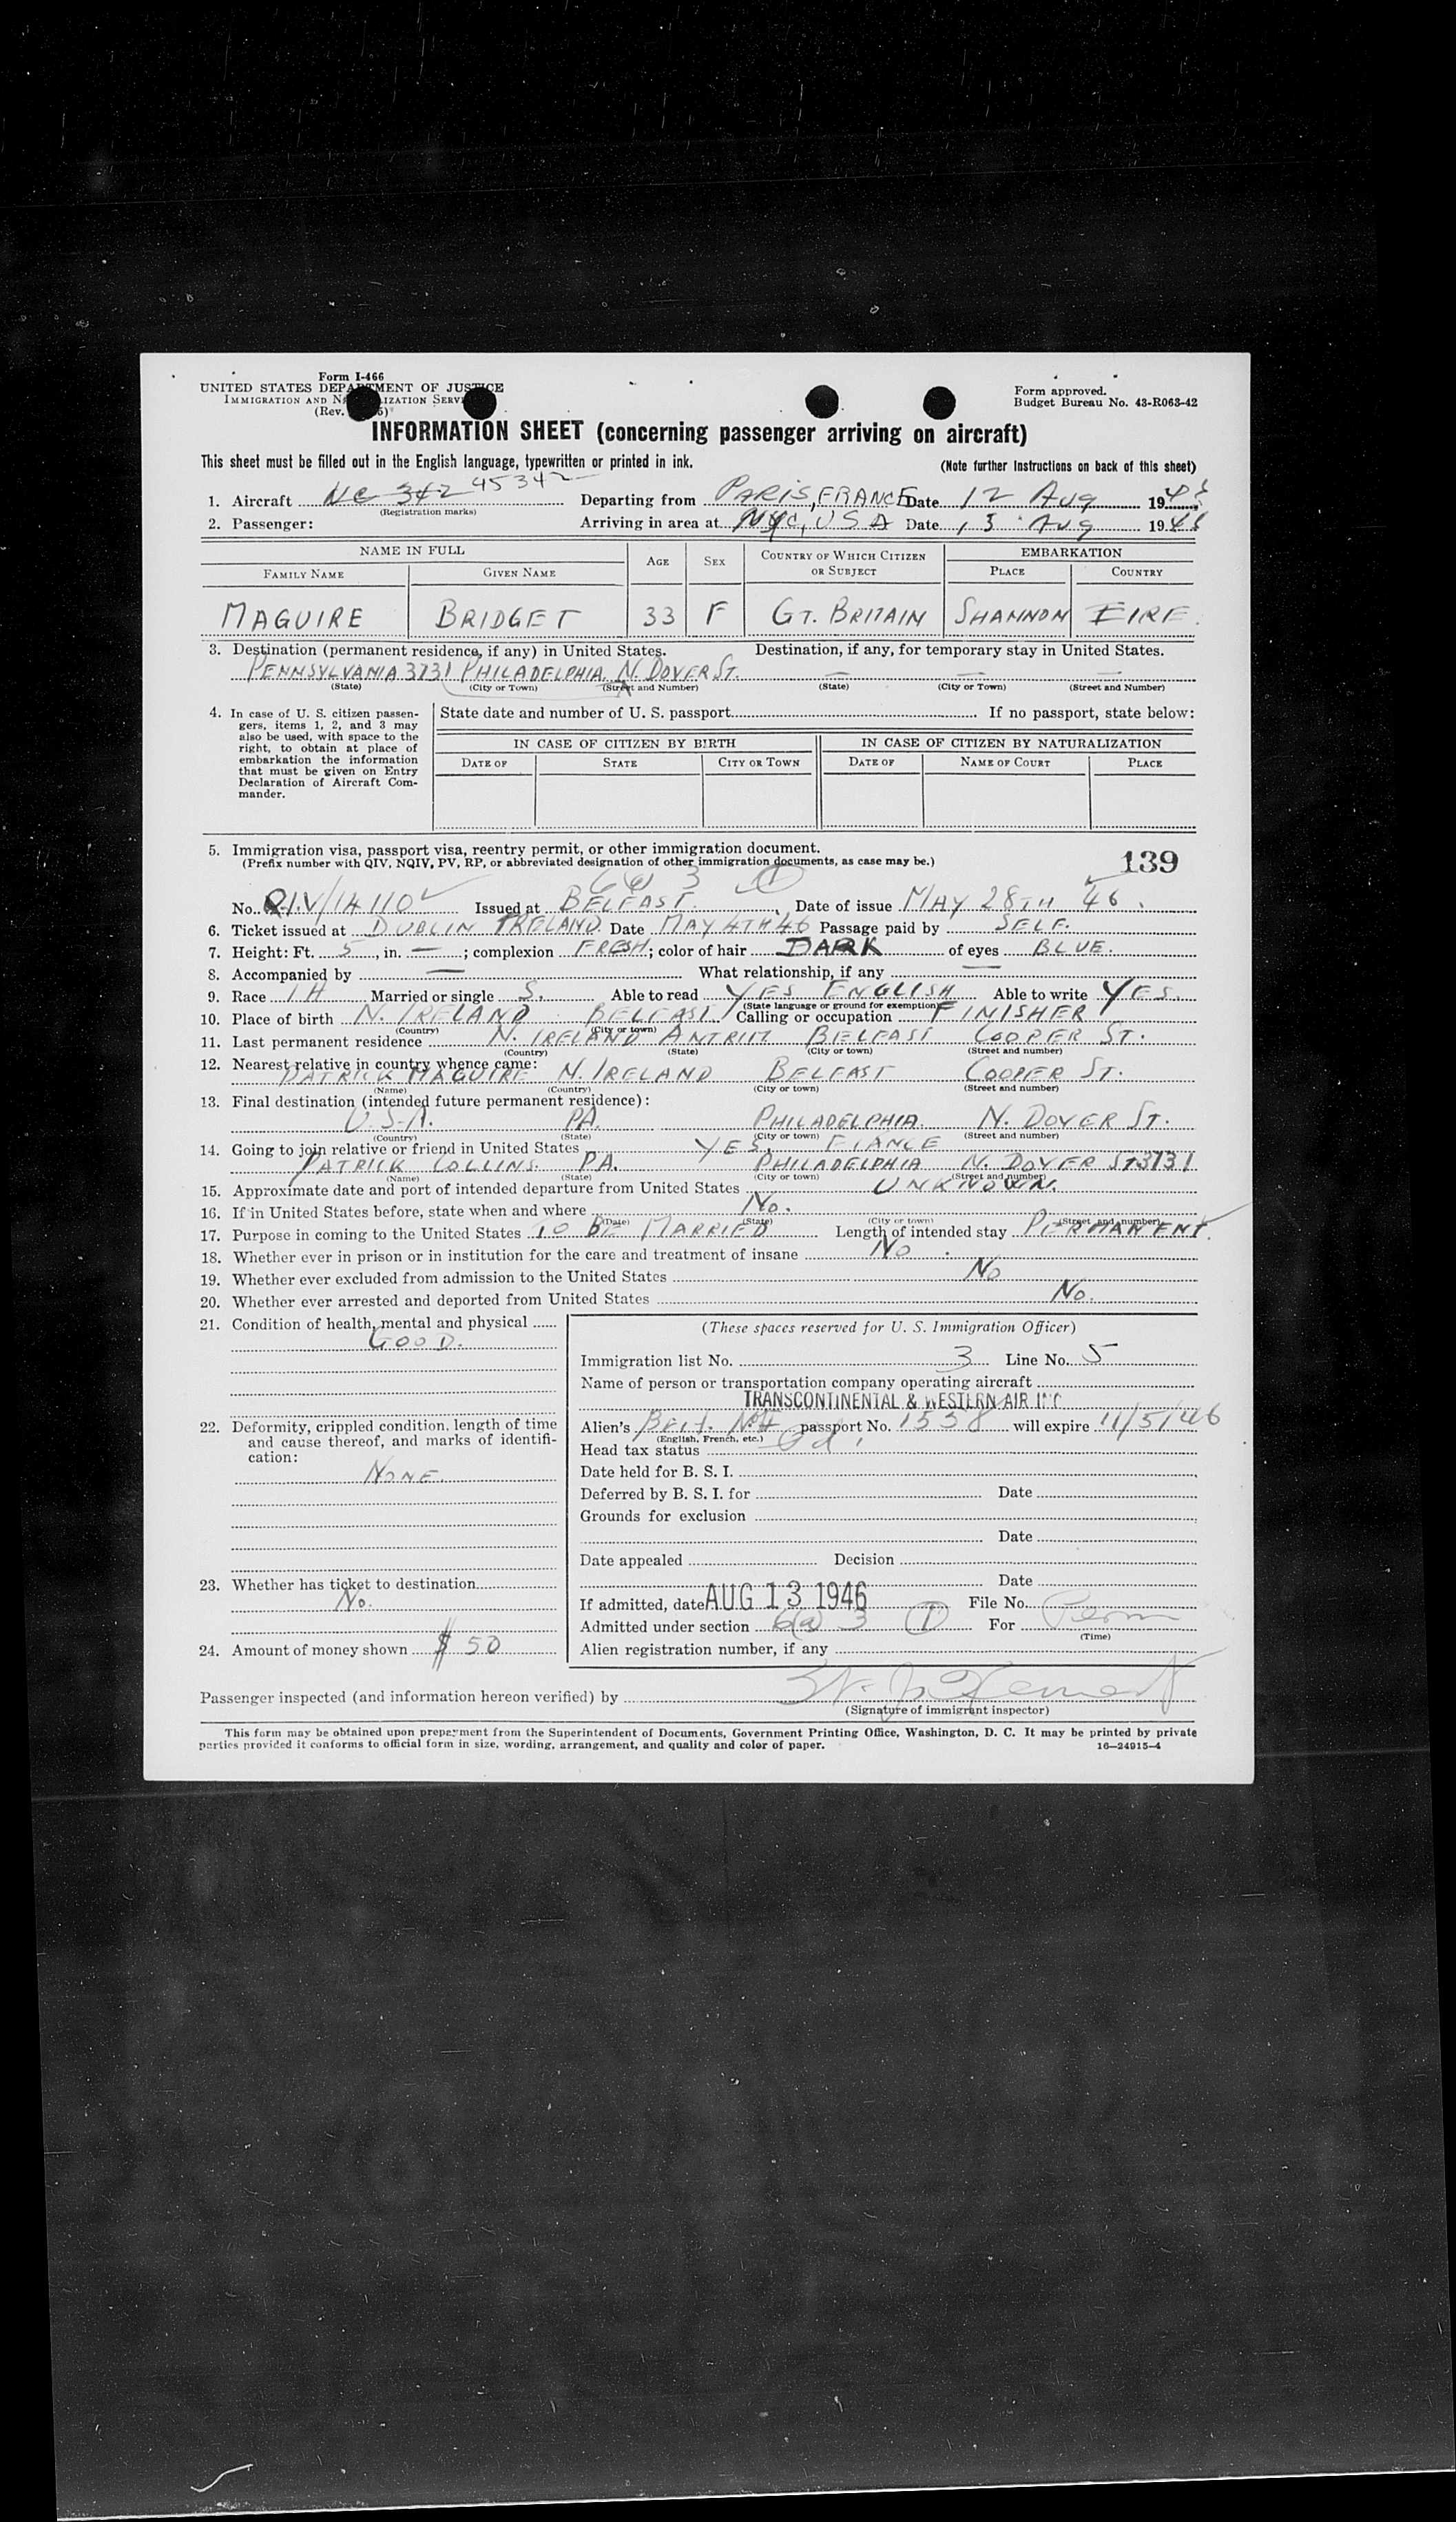 Form I-466
UNITED STATES DEPARTMENT OF JUSTICE
IMMIGRATION AND NATURALIZATION SERVICE
(Rev.
Form approved.
Budget Bureau No. 43-R063-42
INFORMATION SHEET (concerning passenger arriving on aircraft)
This sheet must be filled out in the English language, typewritten or printed in ink. (Note further instructions on back of this sheet)
1. Aircraft NC 342 45342 Departing from PARIS, FRANCE Date 12 Aug 194
(Registration marks)
2. Passenger: Arriving in area at NYC, USA Date 13 Aug 1946
NAME IN FULL AGE SEX COUNTRY OF WHICH CITIZEN OR SUBJECT EMBARKATION
FAMILY NAME GIVEN NAME PLACE COUNTRY
MAGUIRE BRIDGET 33 F GT. BRITAIN SHANNON EIRE.
3. Destination (permanent residence, if any) in United States. Destination, if any, for temporary stay in United States.
PENNSYLVANIA 3731 PHILADELPHIA N. DOVER ST. — — —
(State) (City or Town) (Street and Number) (State) (City or Town) (Street and Number)
4. In case of U. S. citizen passen-
gers, items 1, 2, and 3 may
also be used, with space to the
right, to obtain at place of
embarkation the information
that must be given on Entry
Declaration of Aircraft Com-
mander.
State date and number of U. S. passport If no passport, state below:
IN CASE OF CITIZEN BY BIRTH IN CASE OF CITIZEN BY NATURALIZATION
DATE OF STATE CITY OR TOWN DATE OF NAME OF COURT PLACE
5. Immigration visa, passport visa, reentry permit, or other immigration document.
(Prefix number with QIV, NQIV, PV, RP, or abbreviated designation of other immigration documents, as case may be.) 139
No. QIV/14110 Issued at BELFAST. Date of issue MAY 28TH 46.
6. Ticket issued at DUBLIN IRELAND. Date MAY 4TH 46 Passage paid by SELF.
7. Height: Ft. 5, in. —; complexion FRESH; color of hair DARK of eyes BLUE.
8. Accompanied by — What relationship, if any —
9. Race IH Married or single S. Able to read YES ENGLISH Able to write YES.
(State language or ground for exemption)
10. Place of birth N. IRELAND BELFAST Calling or occupation FINISHER
(Country) (City or town)
11. Last permanent residence N. IRELAND ANTRIM BELFAST COOPER ST.
(Country) (State) (City or town) (Street and number)
12. Nearest relative in country whence came:
PATRICK MAGUIRE N. IRELAND BELFAST COOPER ST.
(Name) (Country) (City or town) (Street and number)
13. Final destination (intended future permanent residence):
U.S.A. PA. PHILADELPHIA. N. DOVER ST.
(Country) (State) (City or town) (Street and number)
14. Going to join relative or friend in United States YES, FIANCE
PATRICK COLLINS. PA. PHILADELPHIA N. DOVER ST 3731
(Name) (State) (City or town) (Street and number)
15. Approximate date and port of intended departure from United States UNKNOWN.
16. If in United States before, state when and where No.
(Date) (State) (City or town) (Street and number)
17. Purpose in coming to the United States TO BE MARRIED Length of intended stay PERMANENT.
18. Whether ever in prison or in institution for the care and treatment of insane No.
19. Whether ever excluded from admission to the United States No
20. Whether ever arrested and deported from United States No.
21. Condition of health, mental and physical
GOOD.
22. Deformity, crippled condition, length of time
and cause thereof, and marks of identifi-
cation:
NONE.
23. Whether has ticket to destination
No.
24. Amount of money shown $ 50
(These spaces reserved for U. S. Immigration Officer)
Immigration list No. 3 Line No. 5
Name of person or transportation company operating aircraft
TRANSCONTINENTAL & WESTERN AIR INC
Alien's passport No. 1538 will expire 11/5/46
(English, French, etc.)
Head tax status Pd.
Date held for B. S. I.
Deferred by B. S. I. for Date
Grounds for exclusion
Date
Date appealed Decision
Date
If admitted, date AUG 13 1946 File No.
Admitted under section 6(a) 3 (1) For Perm
(Time)
Alien registration number, if any
Passenger inspected (and information hereon verified) by
(Signature of immigrant inspector)
This form may be obtained upon prepayment from the Superintendent of Documents, Government Printing Office, Washington, D. C. It may be printed by private
parties provided it conforms to official form in size, wording, arrangement, and quality and color of paper. 16—24915-4